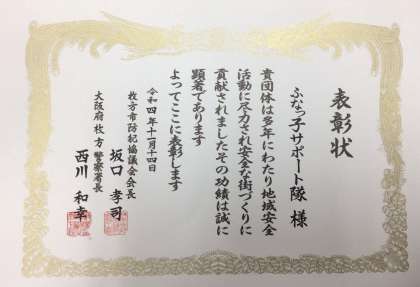 表彰状
ふなっ子サポート隊 様
貴団体は多年にわたり地域安全
活動に尽力され安全な街づくりに
貢献されましたその功績は誠に
顕著であります
よってここに表彰します
令和四年十一月十四日
枚方市防犯協議会会長
坂口 孝司
大阪府枚方警察署長
西川 和幸